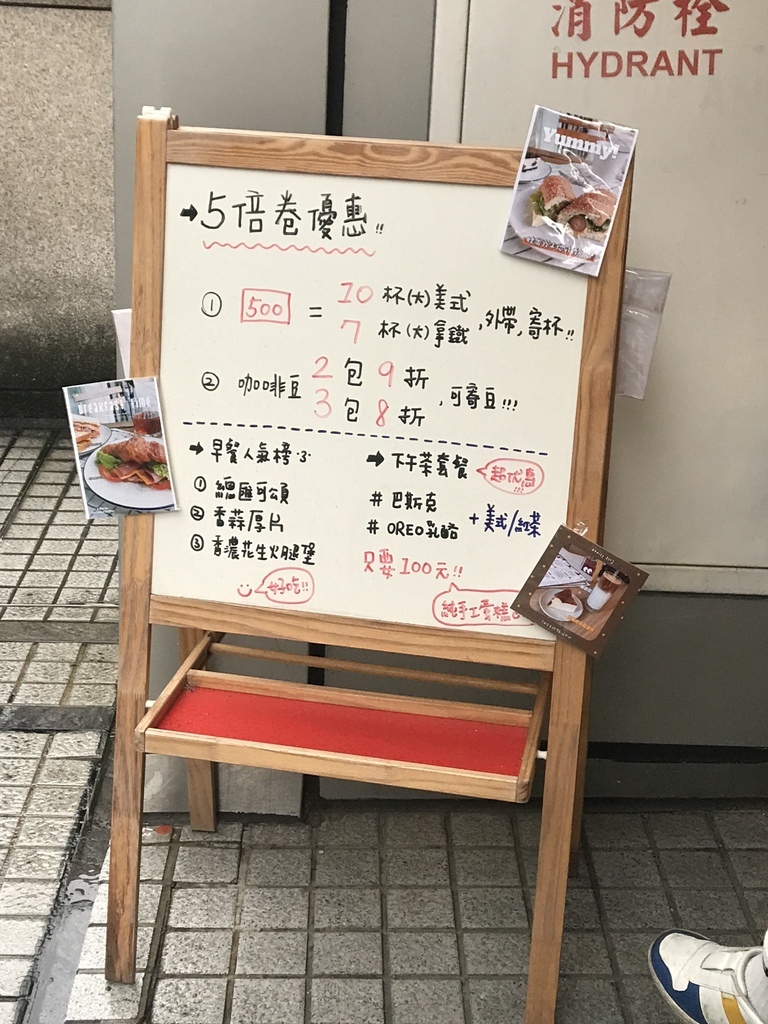 消防栓
HYDRANT
Yummy!
→5倍卷優惠!!
① 500 = 10 杯(大)美式
7 杯(大)拿鐵
,外帶,寄杯!!
② 咖啡豆 2包 9折
3包 8折
,可寄豆!!!
Breakfast time
→早餐人氣榜·3·
① 總匯可頌
② 香蒜厚片
③ 香濃花生火腿堡
好吃!!
→下午茶套餐
超优惠!!!
# 巴斯克
# OREO乳酪
+美式/紅茶
只要100元!!
純手工蛋糕